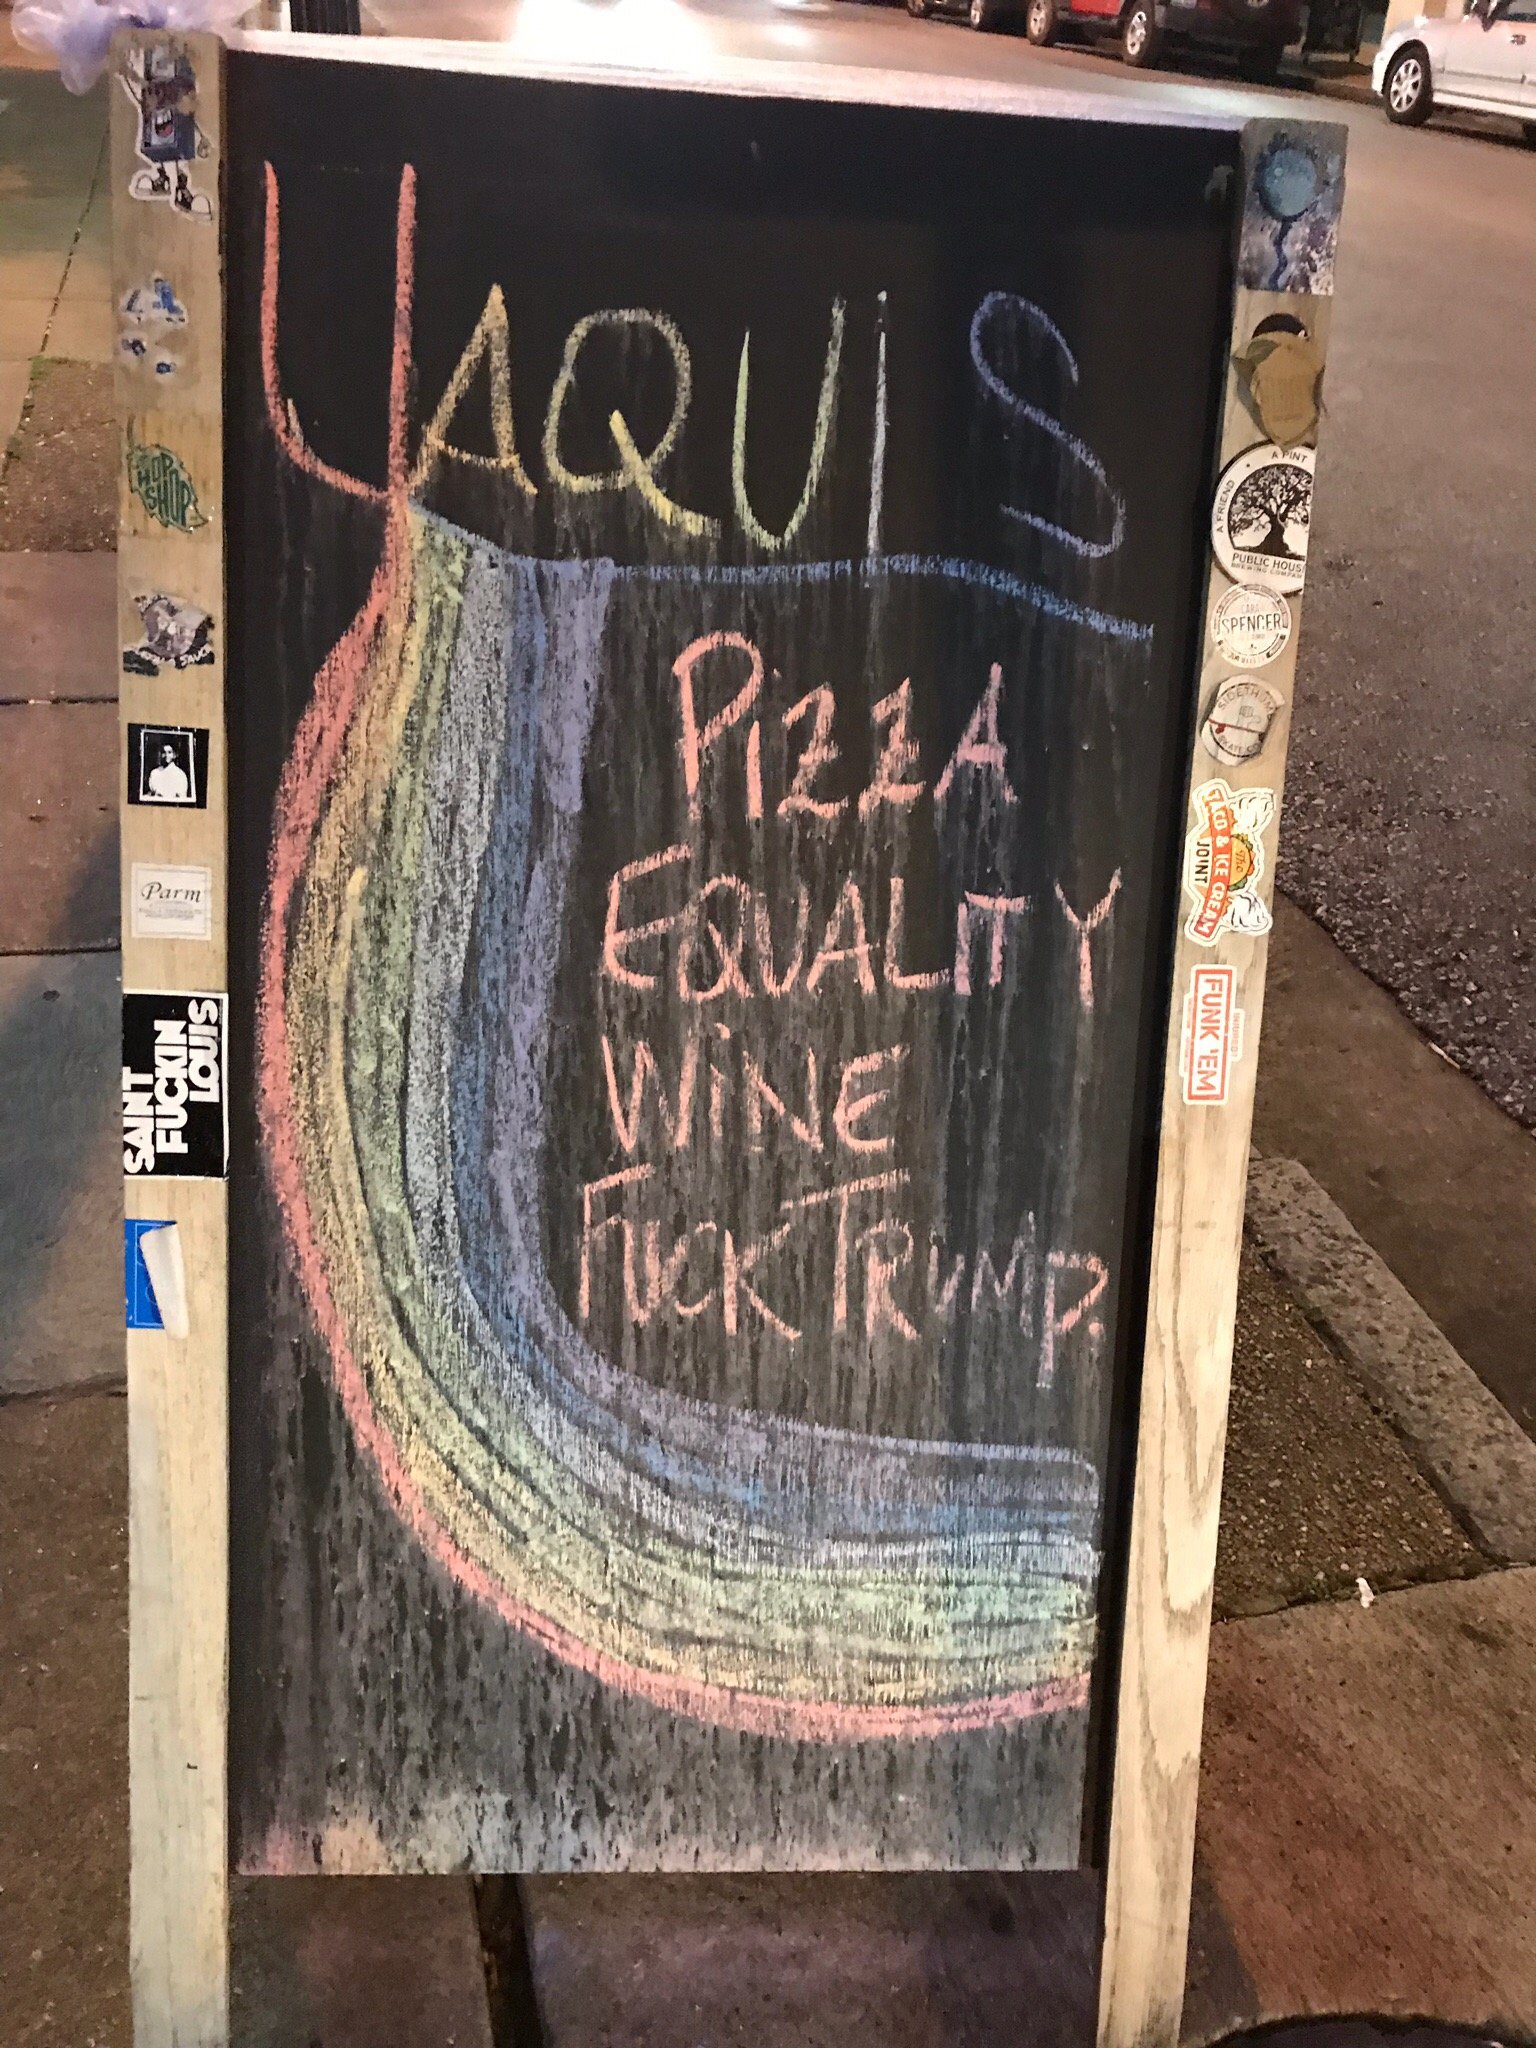 YAQUIS
PiZZA
EQUALITY
WiNE
FUCK TRUMP.
HOP
SHOP
Parm
SAINT
FUCKIN
LOUIS
A PINT
A FRIEND
PUBLIC HOUSE
BREWING COMPANY
CARA
SPENCER
The
TACO & ICE CREAM
JOINT
FUNK 'EM